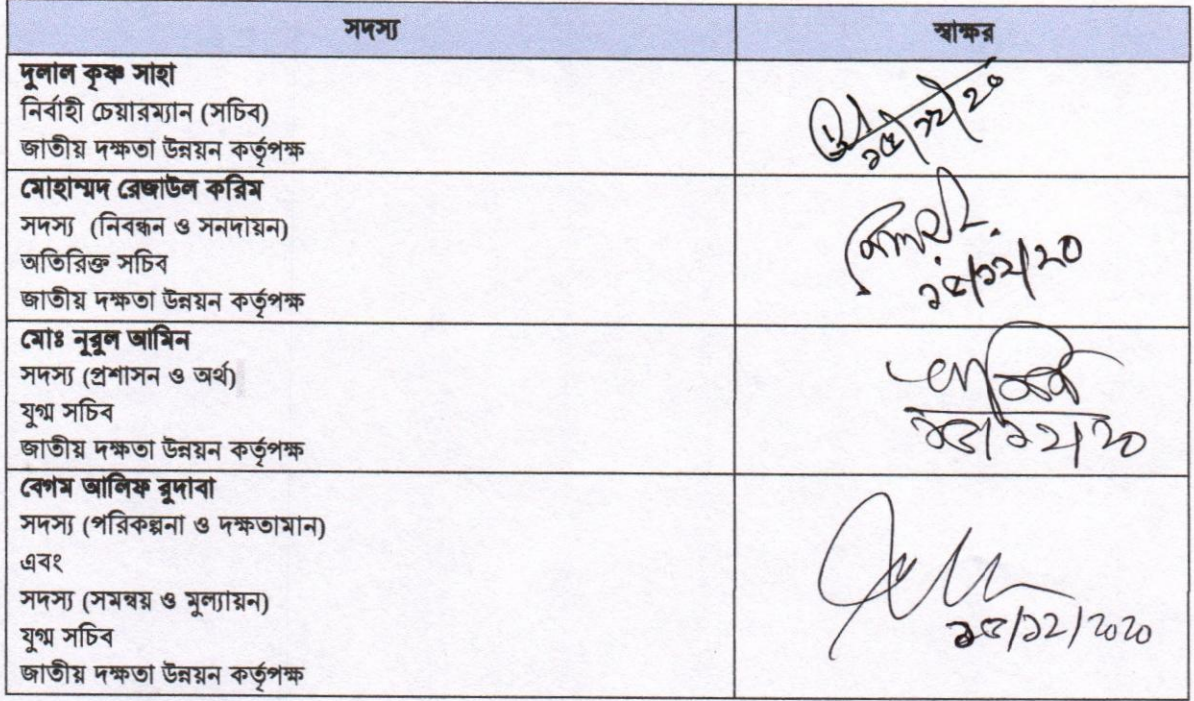 সদস্য স্বাক্ষর
দুলাল কৃষ্ণ সাহা
নির্বাহী চেয়ারম্যান (সচিব)
জাতীয় দক্ষতা উন্নয়ন কর্তৃপক্ষ
১৫/১২/২০
মোহাম্মদ রেজাউল করিম
সদস্য (নিবন্ধন ও সনদায়ন)
অতিরিক্ত সচিব
জাতীয় দক্ষতা উন্নয়ন কর্তৃপক্ষ
১৫/১২/২০
মোঃ নূরুল আমিন
সদস্য (প্রশাসন ও অর্থ)
যুগ্ম সচিব
জাতীয় দক্ষতা উন্নয়ন কর্তৃপক্ষ
১৫/১২/২০
বেগম আলিফ রুদাবা
সদস্য (পরিকল্পনা ও দক্ষতামান)
এবং
সদস্য (সমন্বয় ও মুল্যায়ন)
যুগ্ম সচিব
জাতীয় দক্ষতা উন্নয়ন কর্তৃপক্ষ
১৫/১২/২০২০